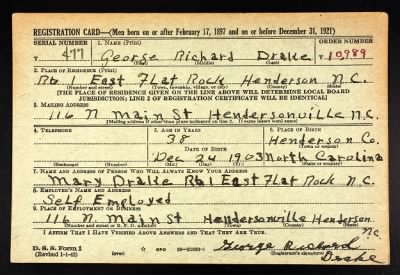 REGISTRATION CARD—(Men born on or after February 17, 1897 and on or before December 31, 1921)
SERIAL NUMBER 1. NAME (Print) ORDER NUMBER
T 477 George Richard Drake T 10,989
(First) (Middle) (Last)
2. PLACE OF RESIDENCE (Print)
R61 East Flat Rock Henderson N.C.
(Number and street) (Town, township, village, or city) (County) (State)
[THE PLACE OF RESIDENCE GIVEN ON THE LINE ABOVE WILL DETERMINE LOCAL BOARD
JURISDICTION; LINE 2 OF REGISTRATION CERTIFICATE WILL BE IDENTICAL]
3. MAILING ADDRESS
116 N Main St Hendersonville N.C.
[Mailing address if other than place indicated on line 2. If same insert word same]
4. TELEPHONE 5. AGE IN YEARS 6. PLACE OF BIRTH
38 Henderson Co.
DATE OF BIRTH (Town or county)
Dec 24 1903 North Carolina
(Exchange) (Number) (Mo.) (Day) (Yr.) (State or country)
7. NAME AND ADDRESS OF PERSON WHO WILL ALWAYS KNOW YOUR ADDRESS
Mary Drake R61 East Flat Rock N.C.
8. EMPLOYER'S NAME AND ADDRESS
Self Employed
9. PLACE OF EMPLOYMENT OR BUSINESS
116 N. Main St Hendersonville Henderson
(Number and street or R. F. D. number) (Town) (County) (State)
N.C
I AFFIRM THAT I HAVE VERIFIED ABOVE ANSWERS AND THAT THEY ARE TRUE.
D. S. S. Form 1 GPO George Richard
(Revised 1-1-42) (Registrant's signature)
Drake